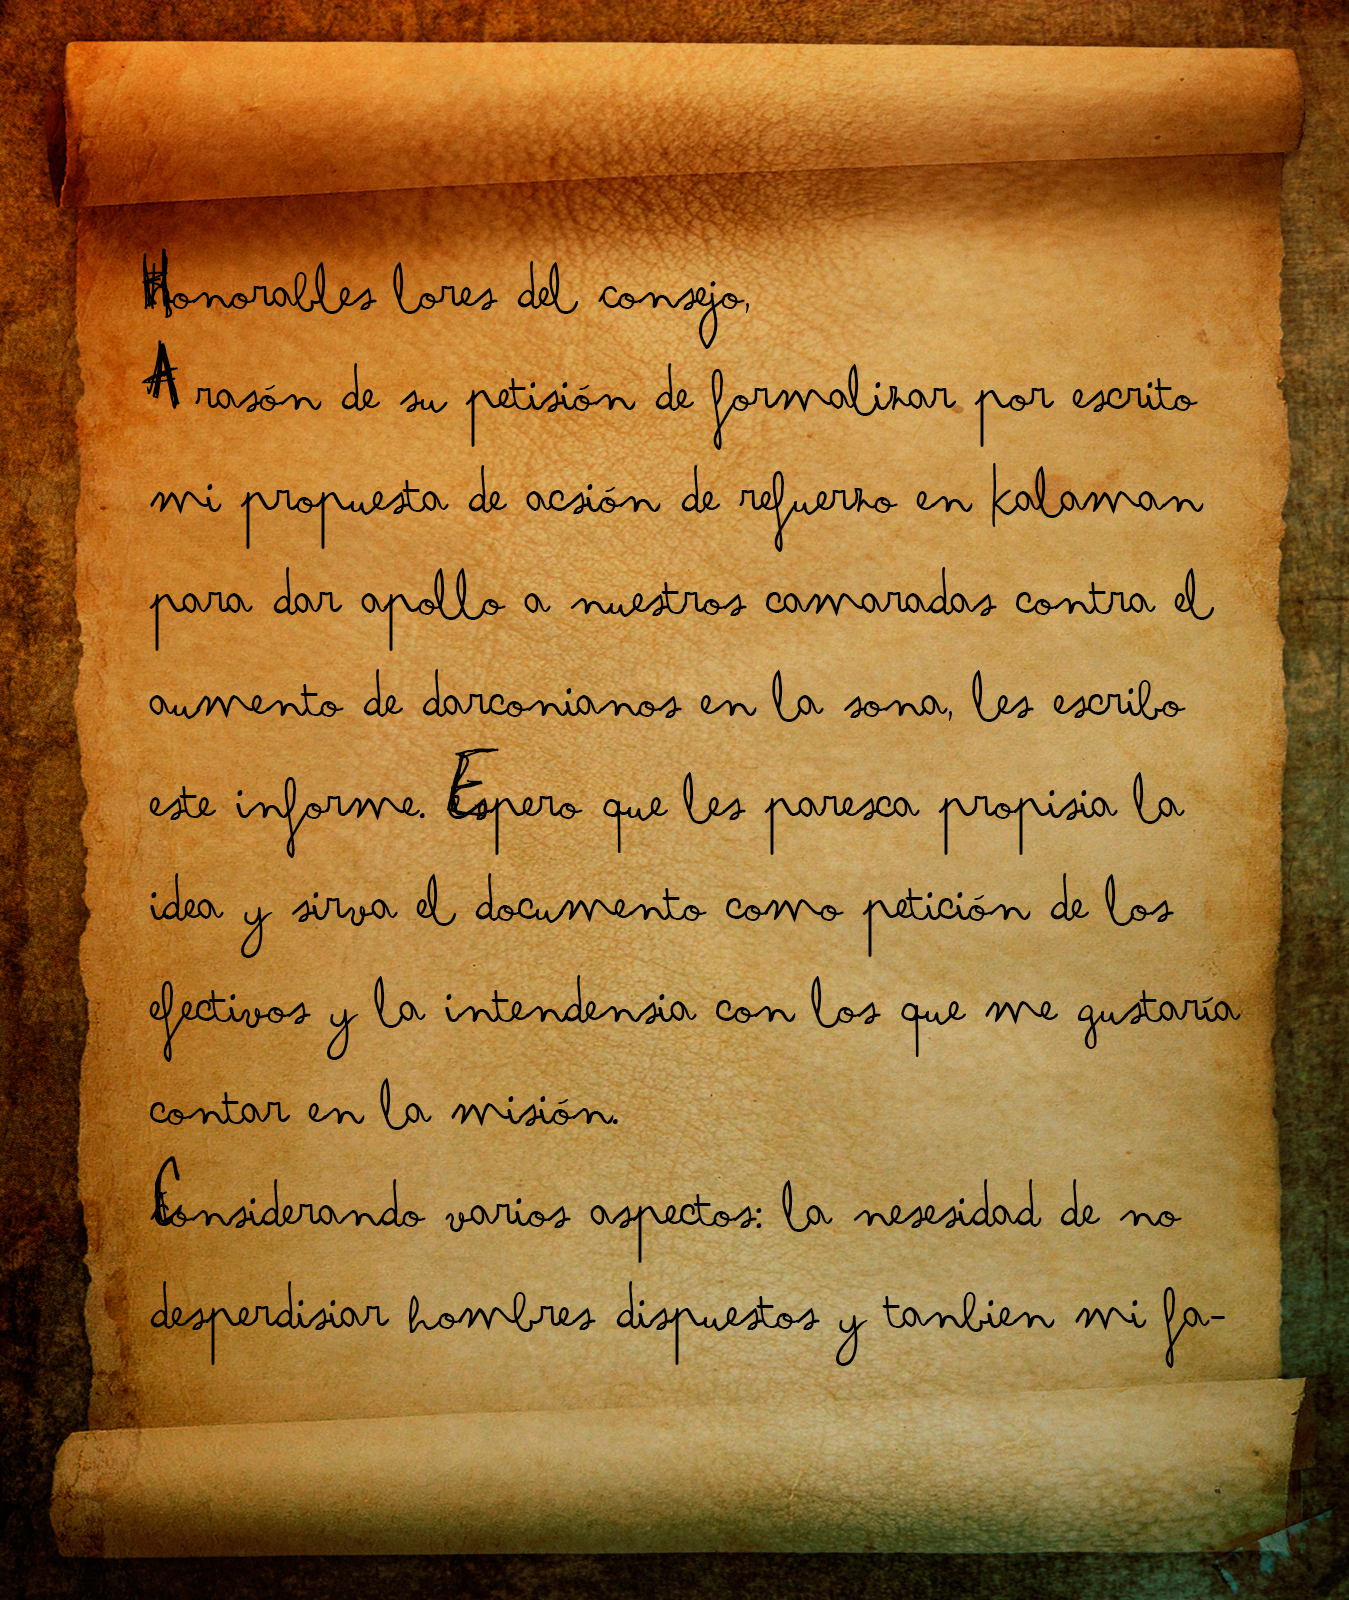 Honorables lores del consejo,
A rasón de su petisión de formalizar por escrito
mi propuesta de acsión de refuerzo en kalaman
para dar apollo a nuestros camaradas contra el
aumento de darconianos en la sona, les escribo
este informe. Espero que les paresca propisia la
idea y sirva el documento como petición de los
efectivos y la intendensia con los que me gustaría
contar en la misión.
Considerando varios aspectos: la nesesidad de no
desperdisiar hombres dispuestos y tanbien mi fa-